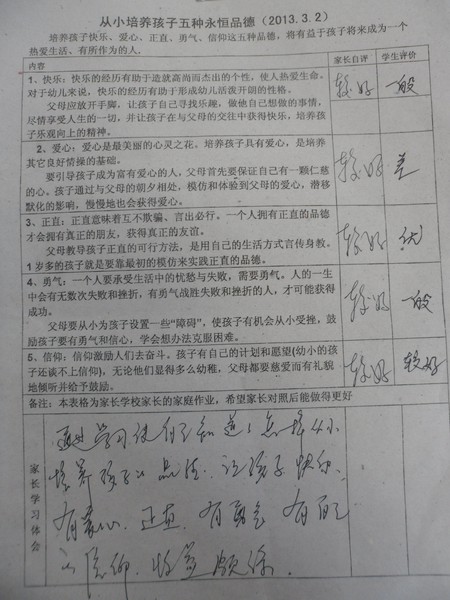 从小培养孩子五种永恒品德（2013.3.2）
培养孩子快乐、爱心、正直、勇气、信仰这五种品德，将有益于孩子将来成为一个
热爱生活、有所作为的人。
内容 家长自评 学生评价
1、快乐：快乐的经历有助于造就高尚而杰出的个性，使人热爱生命。
对于幼儿来说，快乐的经历有助于形成幼儿活泼开朗的性格。
父母应放开手脚，让孩子自己寻找乐趣，做他自己想做的事情，
尽情享受人生的一切，并让孩子在与父母的交往中获得快乐，培养孩
子乐观向上的精神。
较好 一般
2、爱心：爱心是最美丽的心灵之花。培养孩子具有爱心，是培养
其它良好情操的基础。
要引导孩子成为富有爱心的人，父母首先要保证自己有一颗仁慈
的心。孩子通过与父母的朝夕相处，模仿和体验到父母的爱心，潜移
默化的影响，慢慢地也会获得爱心。
较好 差
3、正直：正直意味着互不欺骗、言出必行。一个人拥有正直的品德
才会拥有真正的朋友，获得真正的友谊。
父母教导孩子正直的可行方法，是用自己的生活方式言传身教。
1岁多的孩子就是要靠最初的模仿来实践正直的品德。
较好 优
4、勇气：一个人要承受生活中的忧愁与失败，需要勇气。人的一生
中会有无数次失败和挫折，有勇气战胜失败和挫折的人，才可能获得
成功。
父母要从小为孩子设置一些“障碍”，使孩子有机会从小受挫，鼓
励孩子要有勇气和信心，学会想办法克服困难。
较好 一般
5、信仰：信仰激励人们去奋斗。孩子有自己的计划和愿望(幼小的孩
子还谈不上信仰)，无论他们显得多么幼稚，父母都要慈爱而有礼貌
地倾听并给予鼓励。
较好 较好
备注：本表格为家长学校家长的家庭作业，希望家长对照后能做得更好
家长学习体会
通过学习使我们知道了怎样从小
培养孩子的品德，让孩子快乐、
有爱心、正直、有勇气、有自己
的信仰，收益颇深。